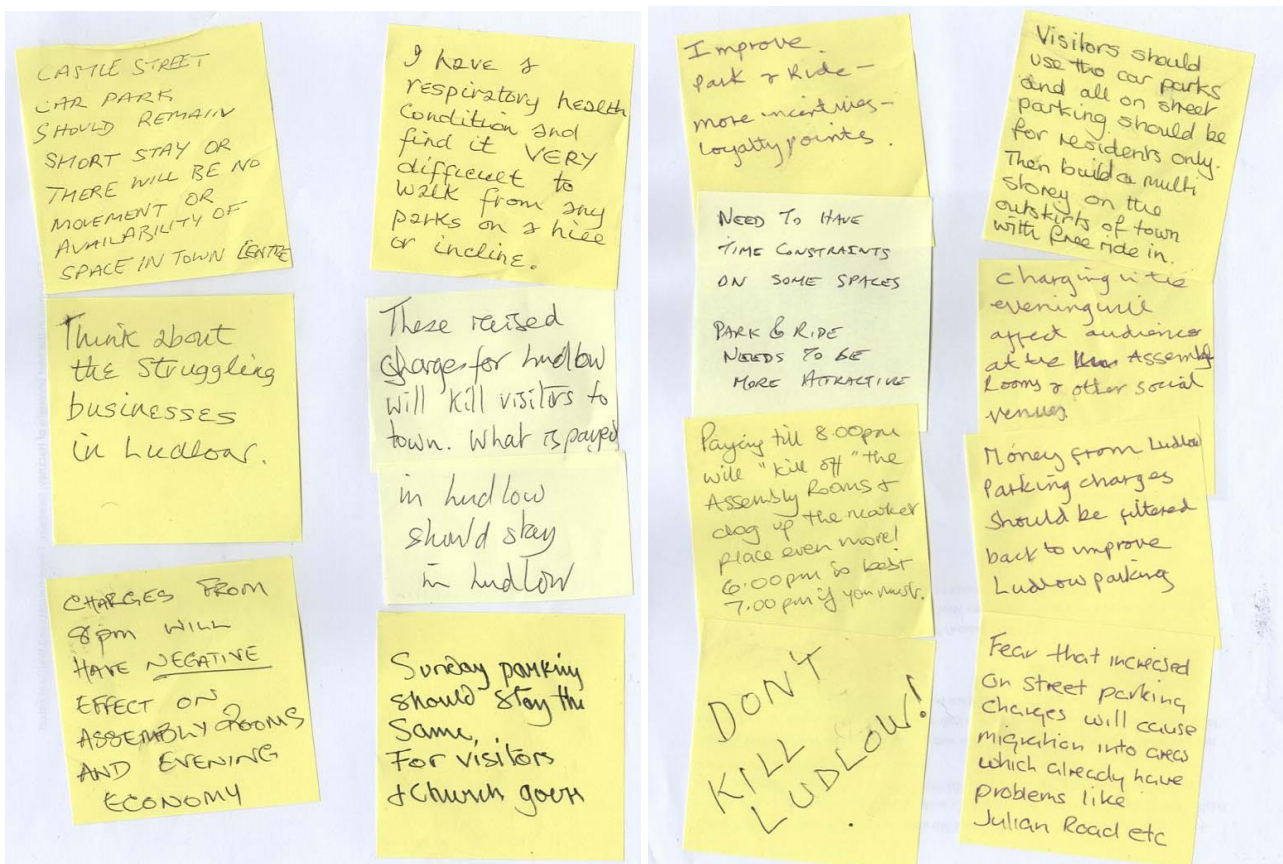 CASTLE STREET
CAR PARK
SHOULD REMAIN
SHORT STAY OR
THERE WILL BE NO
MOVEMENT OR
AVAILABILITY OF
SPACE IN TOWN CENTRE
Think about
the struggling
businesses
in Ludlow.
CHARGES FROM
8pm WILL
HAVE NEGATIVE
EFFECT ON
ASSEMBLY ROOMS
AND EVENING
ECONOMY
I have a
respiratory health
condition and
find it VERY
difficult to
walk from any
parks on a hill
or incline.
These raised
charges for Ludlow
will kill visitors to
town. What is payed
in Ludlow
should stay
in Ludlow
Sunday parking
should stay the
Same,
For visitors
& Church goers
Improve.
Park & Ride –
more incentives –
loyalty points.
NEED TO HAVE
TIME CONSTRAINTS
ON SOME SPACES
PARK & RIDE
NEEDS TO BE
MORE ATTRACTIVE
Paying till 8.00pm
will "kill off" the
Assembly Rooms &
clog up the market
place even more!
6.00pm is best
7.00pm if you must.
DON'T
KILL
LUDLOW!
Visitors should
use the car parks
and all on street
parking should be
for residents only.
Then build a multi
storey on the
outskirts of town
with free ride in.
Charging in the
evening will
affect audiences
at the Assembly
Rooms & other social
venues.
Money from Ludlow
Parking charges
should be filtered
back to improve
Ludlow parking
Fear that increased
on street parking
charges will cause
migration into areas
which already have
problems like
Julian Road etc